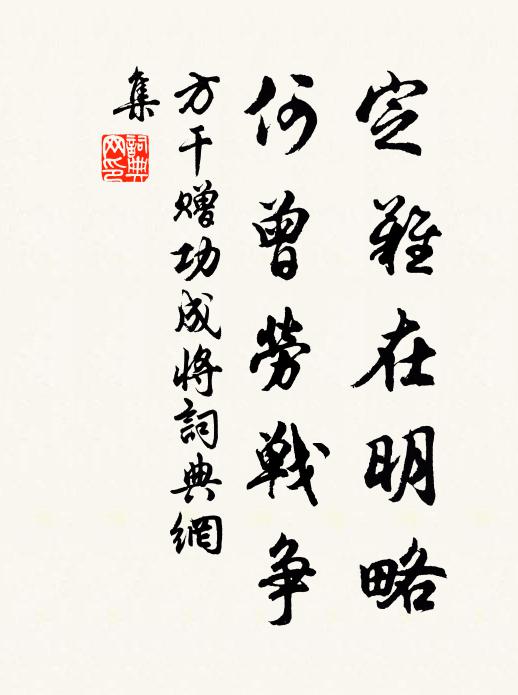 定難在明略
何曾勞戰争
方干贈功成將詞典網
集
詞典網印